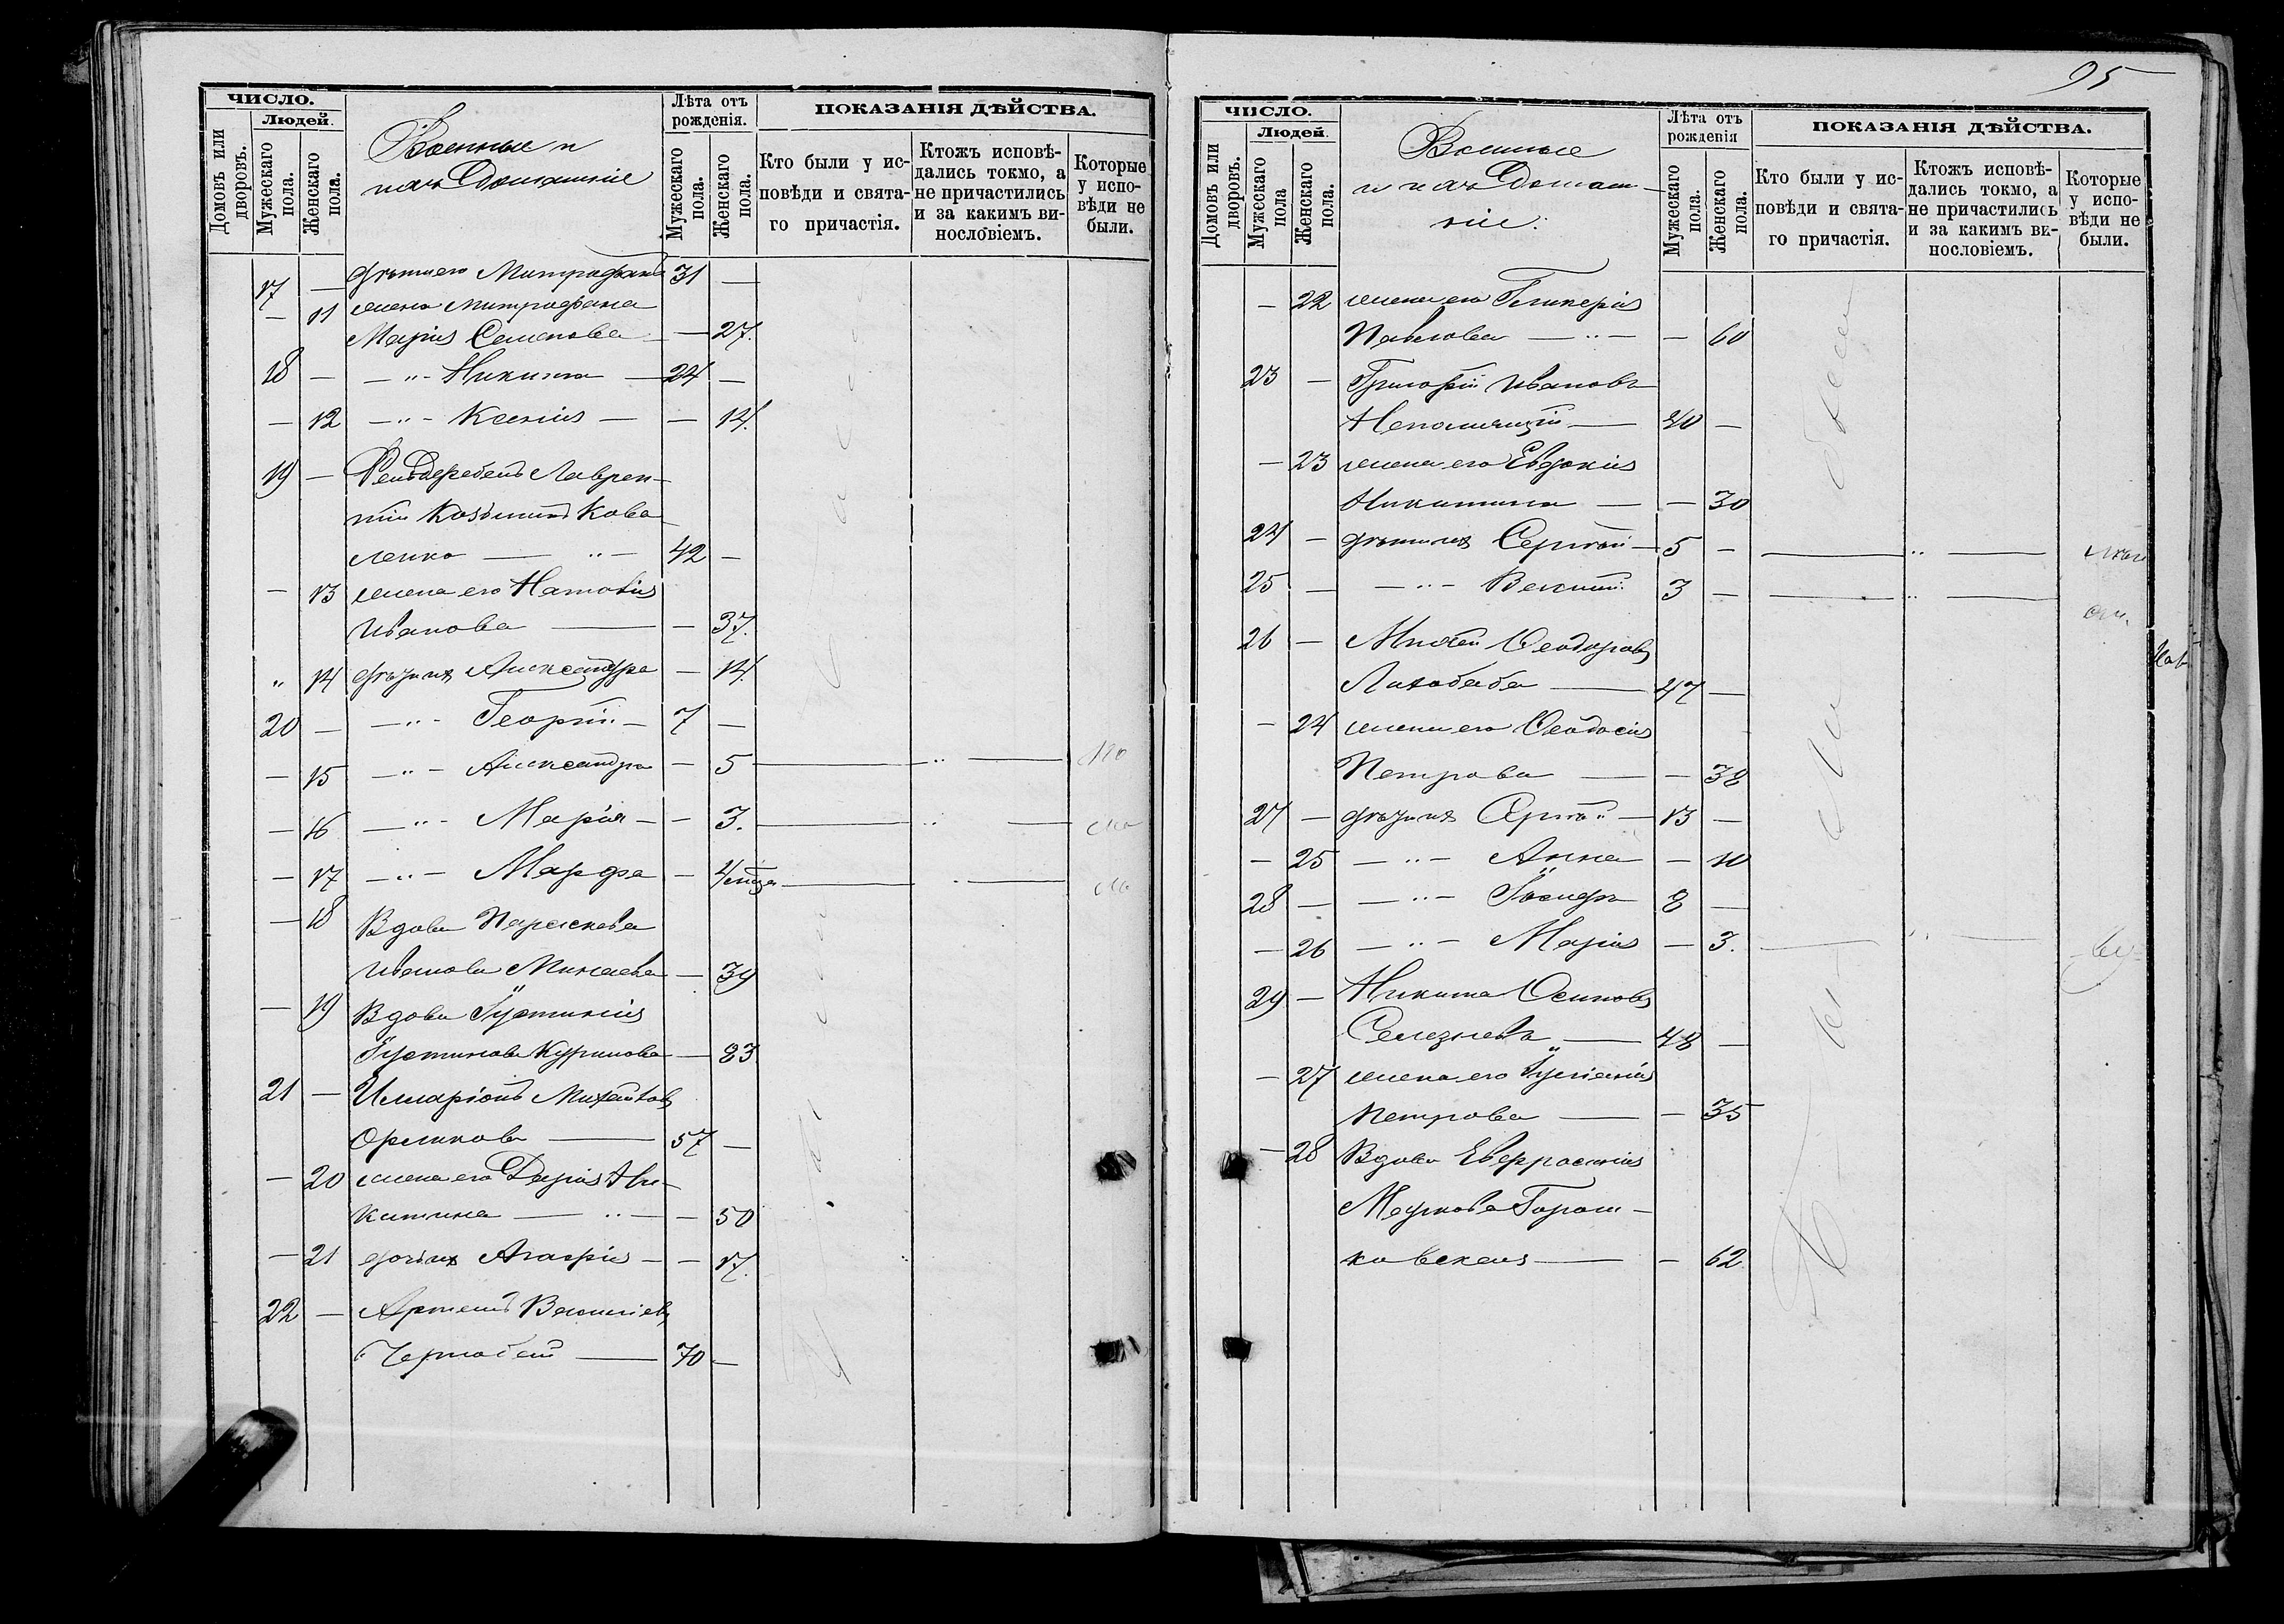 ЧИСЛО.
Людей.
Домовъ или дворовъ.
Мужескаго пола.
Женскаго пола.
Военные и
ихъ Домашніе
Лѣта отъ рожденія.
Мужескаго пола.
Женскаго пола.
ПОКАЗАНІЯ ДѢЙСТВА.
Кто были у ис-
повѣди и свята-
го причастія.
Ктожъ исповѣ-
дались токмо, а
не причастились
и за какимъ ви-
нословіемъ.
Которые
у испо-
вѣди не
были.
17 — Митрофанъ 31 —
— 11 жена Митрофана
Марія Семенова — 27.
18 — —"— Никита — 24 —
— 12 —"— Ксенія — — 14.
19 — Лаврен-
тій Козьминъ Кова
ленко — " — 42 —
— 13 жена его Наталія
Иванова — — 37.
" 14 дѣти ихъ Александра — 14.
20 — —"— Георгій — 7 —
— 15 —"— Александра — 5 — " —
— 16 —"— Марія — — 3. — " —
— 17 —"— Марфа — 4 мѣсца — " —
— 18 Вдова Параскева
Иванова Минаева — 39
— 19 Вдова Іустинія
Іустинова Курилова — 83
21 — Илларіонъ Михайловъ
57 —
— 20 жена его Дарія Ни-
китина — " — — 50
— 21 дочь ихъ Агафія — — 17.
22 — Артемій Василіевъ
70 —
95
ЧИСЛО.
Людей.
Домовъ или дворовъ.
Мужескаго пола
Женскаго пола.
Военные
и ихъ Домаш-
ніе.
Лѣта отъ рожденія
Мужескаго пола.
Женскаго пола.
ПОКАЗАНІЯ ДѢЙСТВА.
Кто были у ис-
повѣди и свята-
го причастія.
Ктожъ исповѣ-
дались токмо, а
не причастились
и за какимъ ви-
нословіемъ.
Которые
у испо-
вѣди не
были.
— 22 жена его Гликерія
Павлова — " — — 60
23 — Григорій Ивановъ
40 —
— 23 жена его Евдокія
Никитина — — 30
24 — дѣти ихъ Сергѣй — 5 — — " —
25 — —"— Василій 3 — — " —
26 — Михей Ѳеодоровъ
Лихобаба — 47 —
— 24 жена его Ѳеодосія
Петрова — — 38
27 — дѣти ихъ 13 —
— 25 —"— Анна — 10
28 — —"— Іосифъ 8 —
— 26 —"— Марія — 3. — " —
29 — Никита Осиповъ
Селезневъ — 48 —
— 27 жена его Іуліанія
Петрова — — 35
— 28 Вдова Евфросинія
Маркова Горош-
ковская — — 62